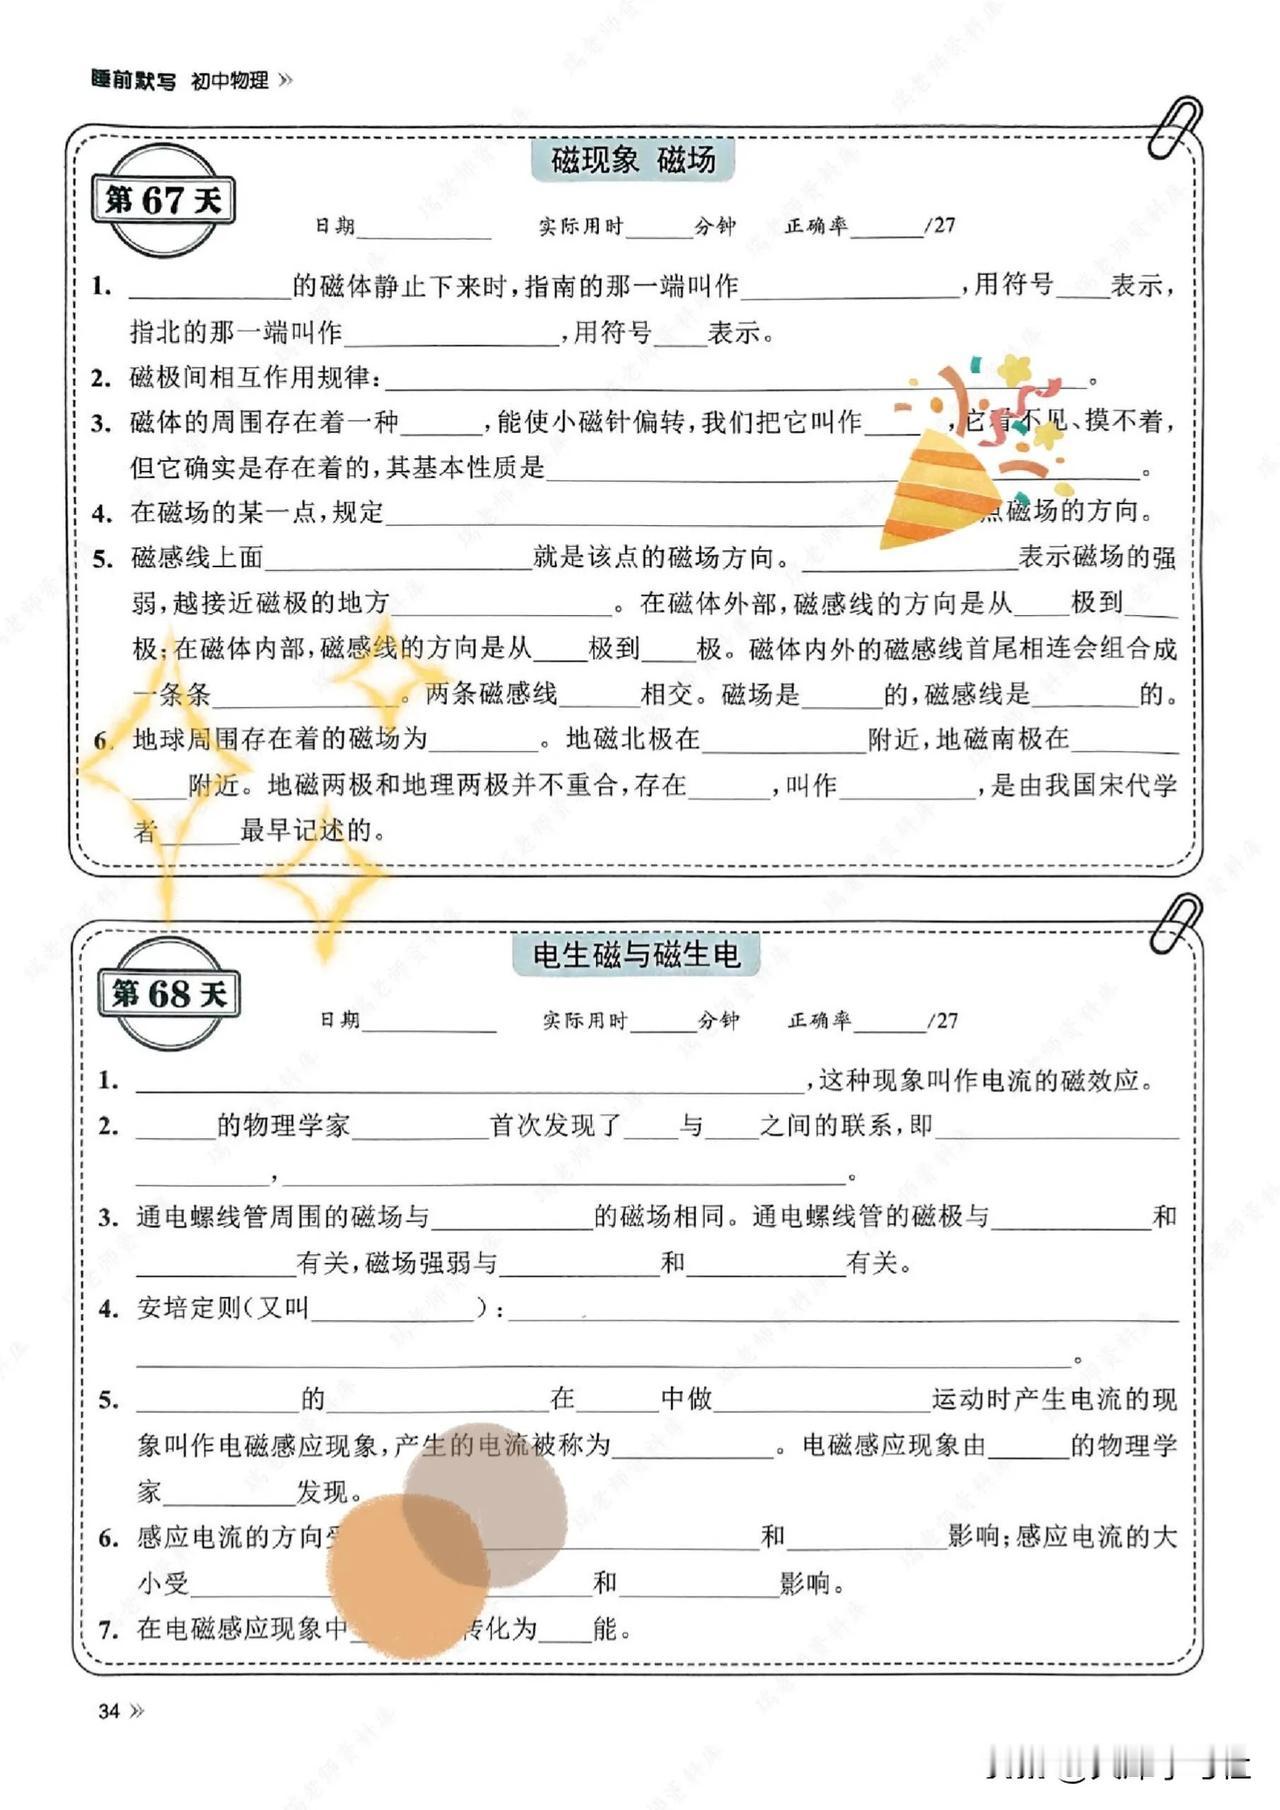 睡前默写 初中物理
磁现象 磁场
第67天
日期__________ 实际用时_____分钟 正确率_____/27
1. ____________的磁体静止下来时,指南的那一端叫作________________,用符号____表示,
指北的那一端叫作________________,用符号____表示。
2. 磁极间相互作用规律:____________________________________________________。
3. 磁体的周围存在着一种______,能使小磁针偏转,我们把它叫作______,它看不见、摸不着,
但它确实是存在着的,其基本性质是____________________________________________。
4. 在磁场的某一点,规定______________________________________点磁场的方向。
5. 磁感线上面____________________就是该点的磁场方向。________________表示磁场的强
弱,越接近磁极的地方________________。在磁体外部,磁感线的方向是从____极到____
极;在磁体内部,磁感线的方向是从____极到____极。磁体内外的磁感线首尾相连会组合成
一条条______________。两条磁感线______相交。磁场是______的,磁感线是________的。
6. 地球周围存在着的磁场为________。地磁北极在____________附近,地磁南极在________
____附近。地磁两极和地理两极并不重合,存在______,叫作__________,是由我国宋代学
者______最早记述的。
电生磁与磁生电
第68天
日期__________ 实际用时_____分钟 正确率_____/27
1. __________________________________________________,这种现象叫作电流的磁效应。
2. ______的物理学家__________首次发现了____与____之间的联系,即__________________
__________,__________________________________________。
3. 通电螺线管周围的磁场与____________的磁场相同。通电螺线管的磁极与____________和
____________有关,磁场强弱与____________和____________有关。
4. 安培定则(又叫____________):__________________________________________________
______________________________________________________________________。
5. ____________的________________在______中做________________运动时产生电流的现
象叫作电磁感应现象,产生的电流被称为____________。电磁感应现象由______的物理学
家__________发现。
6. 感应电流的方向受______________________________和____________影响;感应电流的大
小受______________________________和____________影响。
7. 在电磁感应现象中____转化为____能。
34